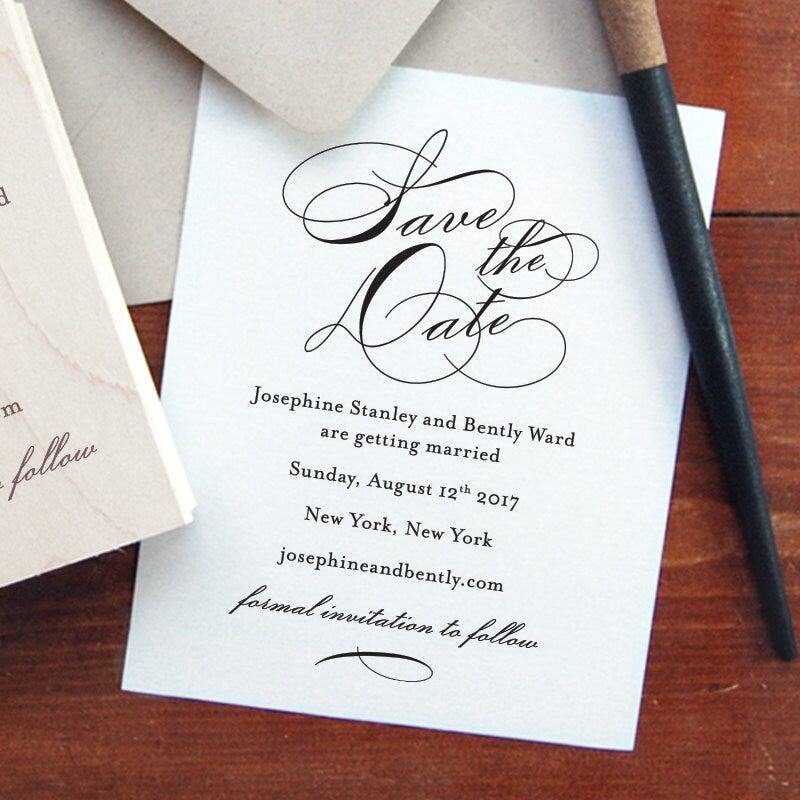 Save
the
Date
Josephine Stanley and Bently Ward
are getting married
Sunday, August 12th 2017
New York, New York
josephineandbently.com
formal invitation to follow
d
m
follow